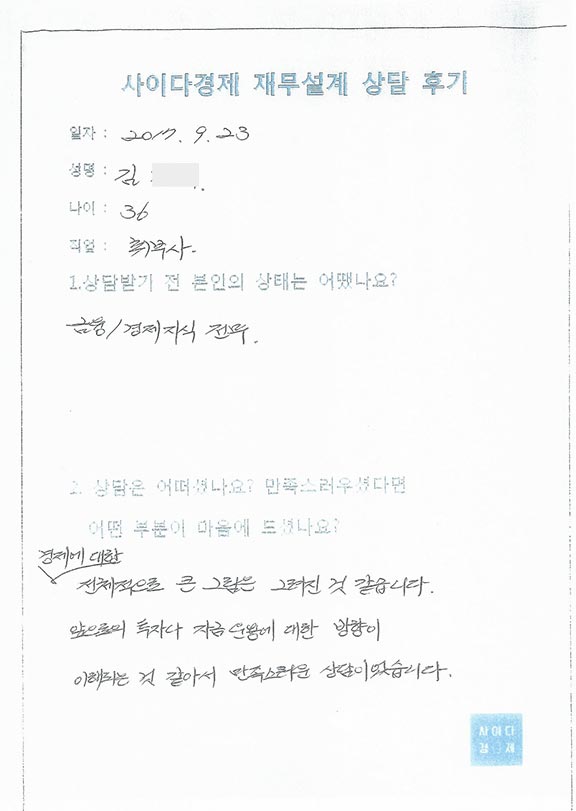 사이다경제 재무설계 상담 후기
일자 : 2017. 9. 23
성명 : 김
나이 : 36
직업 :
1.상담받기 전 본인의 상태는 어땠나요?
금융/경제지식 전무.
2. 상담은 어떠셨나요? 만족스러우셨다면
어떤 부분이 마음에 드셨나요?
경제에 대한
전체적으로 큰 그림은 그려진 것 같습니다.
앞으로의 투자나 자금 운용에 대한 방향이
이해되는 것 같아서 만족스러운 상담이었습니다.
사이다
경제